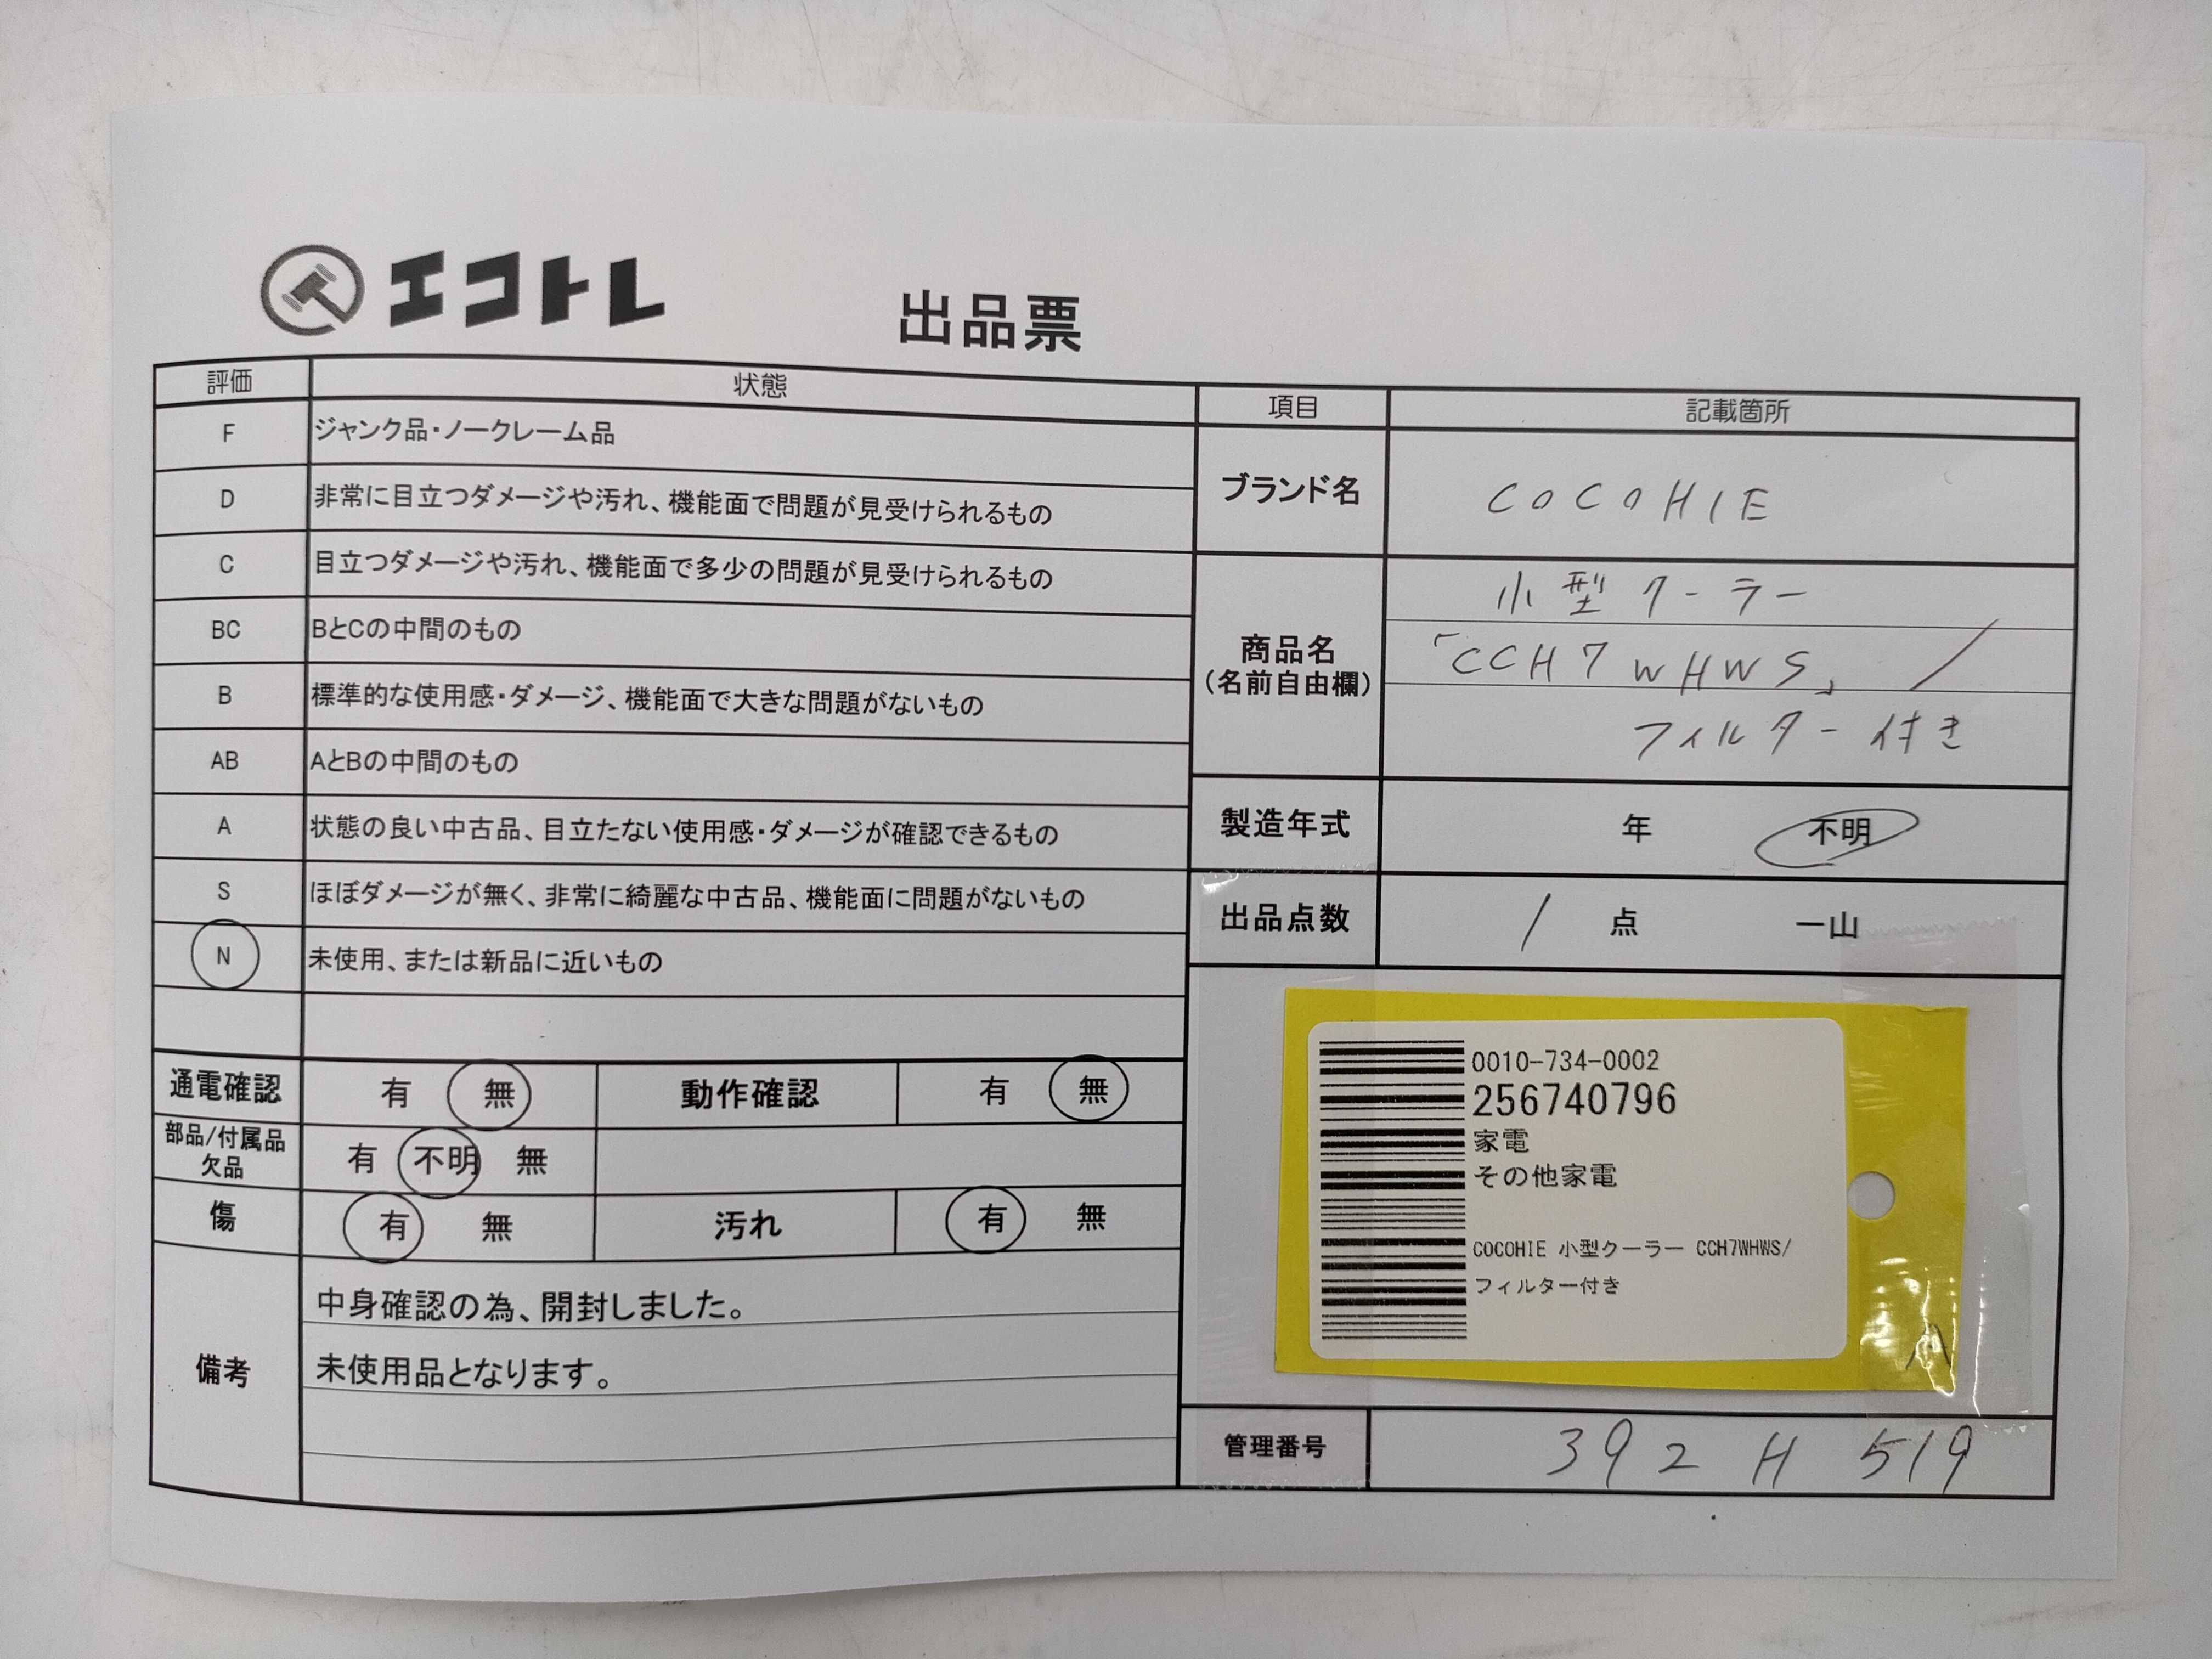 エコトレ
出品票
評価 状態
F ジャンク品・ノークレーム品
D 非常に目立つダメージや汚れ、機能面で問題が見受けられるもの
C 目立つダメージや汚れ、機能面で多少の問題が見受けられるもの
BC BとCの中間のもの
B 標準的な使用感・ダメージ、機能面で大きな問題がないもの
AB AとBの中間のもの
A 状態の良い中古品、目立たない使用感・ダメージが確認できるもの
S ほぼダメージが無く、非常に綺麗な中古品、機能面に問題がないもの
N 未使用、または新品に近いもの
通電確認 有 無 動作確認 有 無
部品/付属品
欠品 有 不明 無
傷 有 無 汚れ 有 無
備考
中身確認の為、開封しました。
未使用品となります。
項目 記載箇所
ブランド名 COCOHIE
商品名
(名前自由欄)
小型クーラー
「CCH7WHWS」/
フィルター付き
製造年式 年 不明
出品点数 1 点 一山
0010-734-0002
256740796
家電
その他家電
COCOHIE 小型クーラー CCH7WHWS/
フィルター付き
管理番号 392 H 519